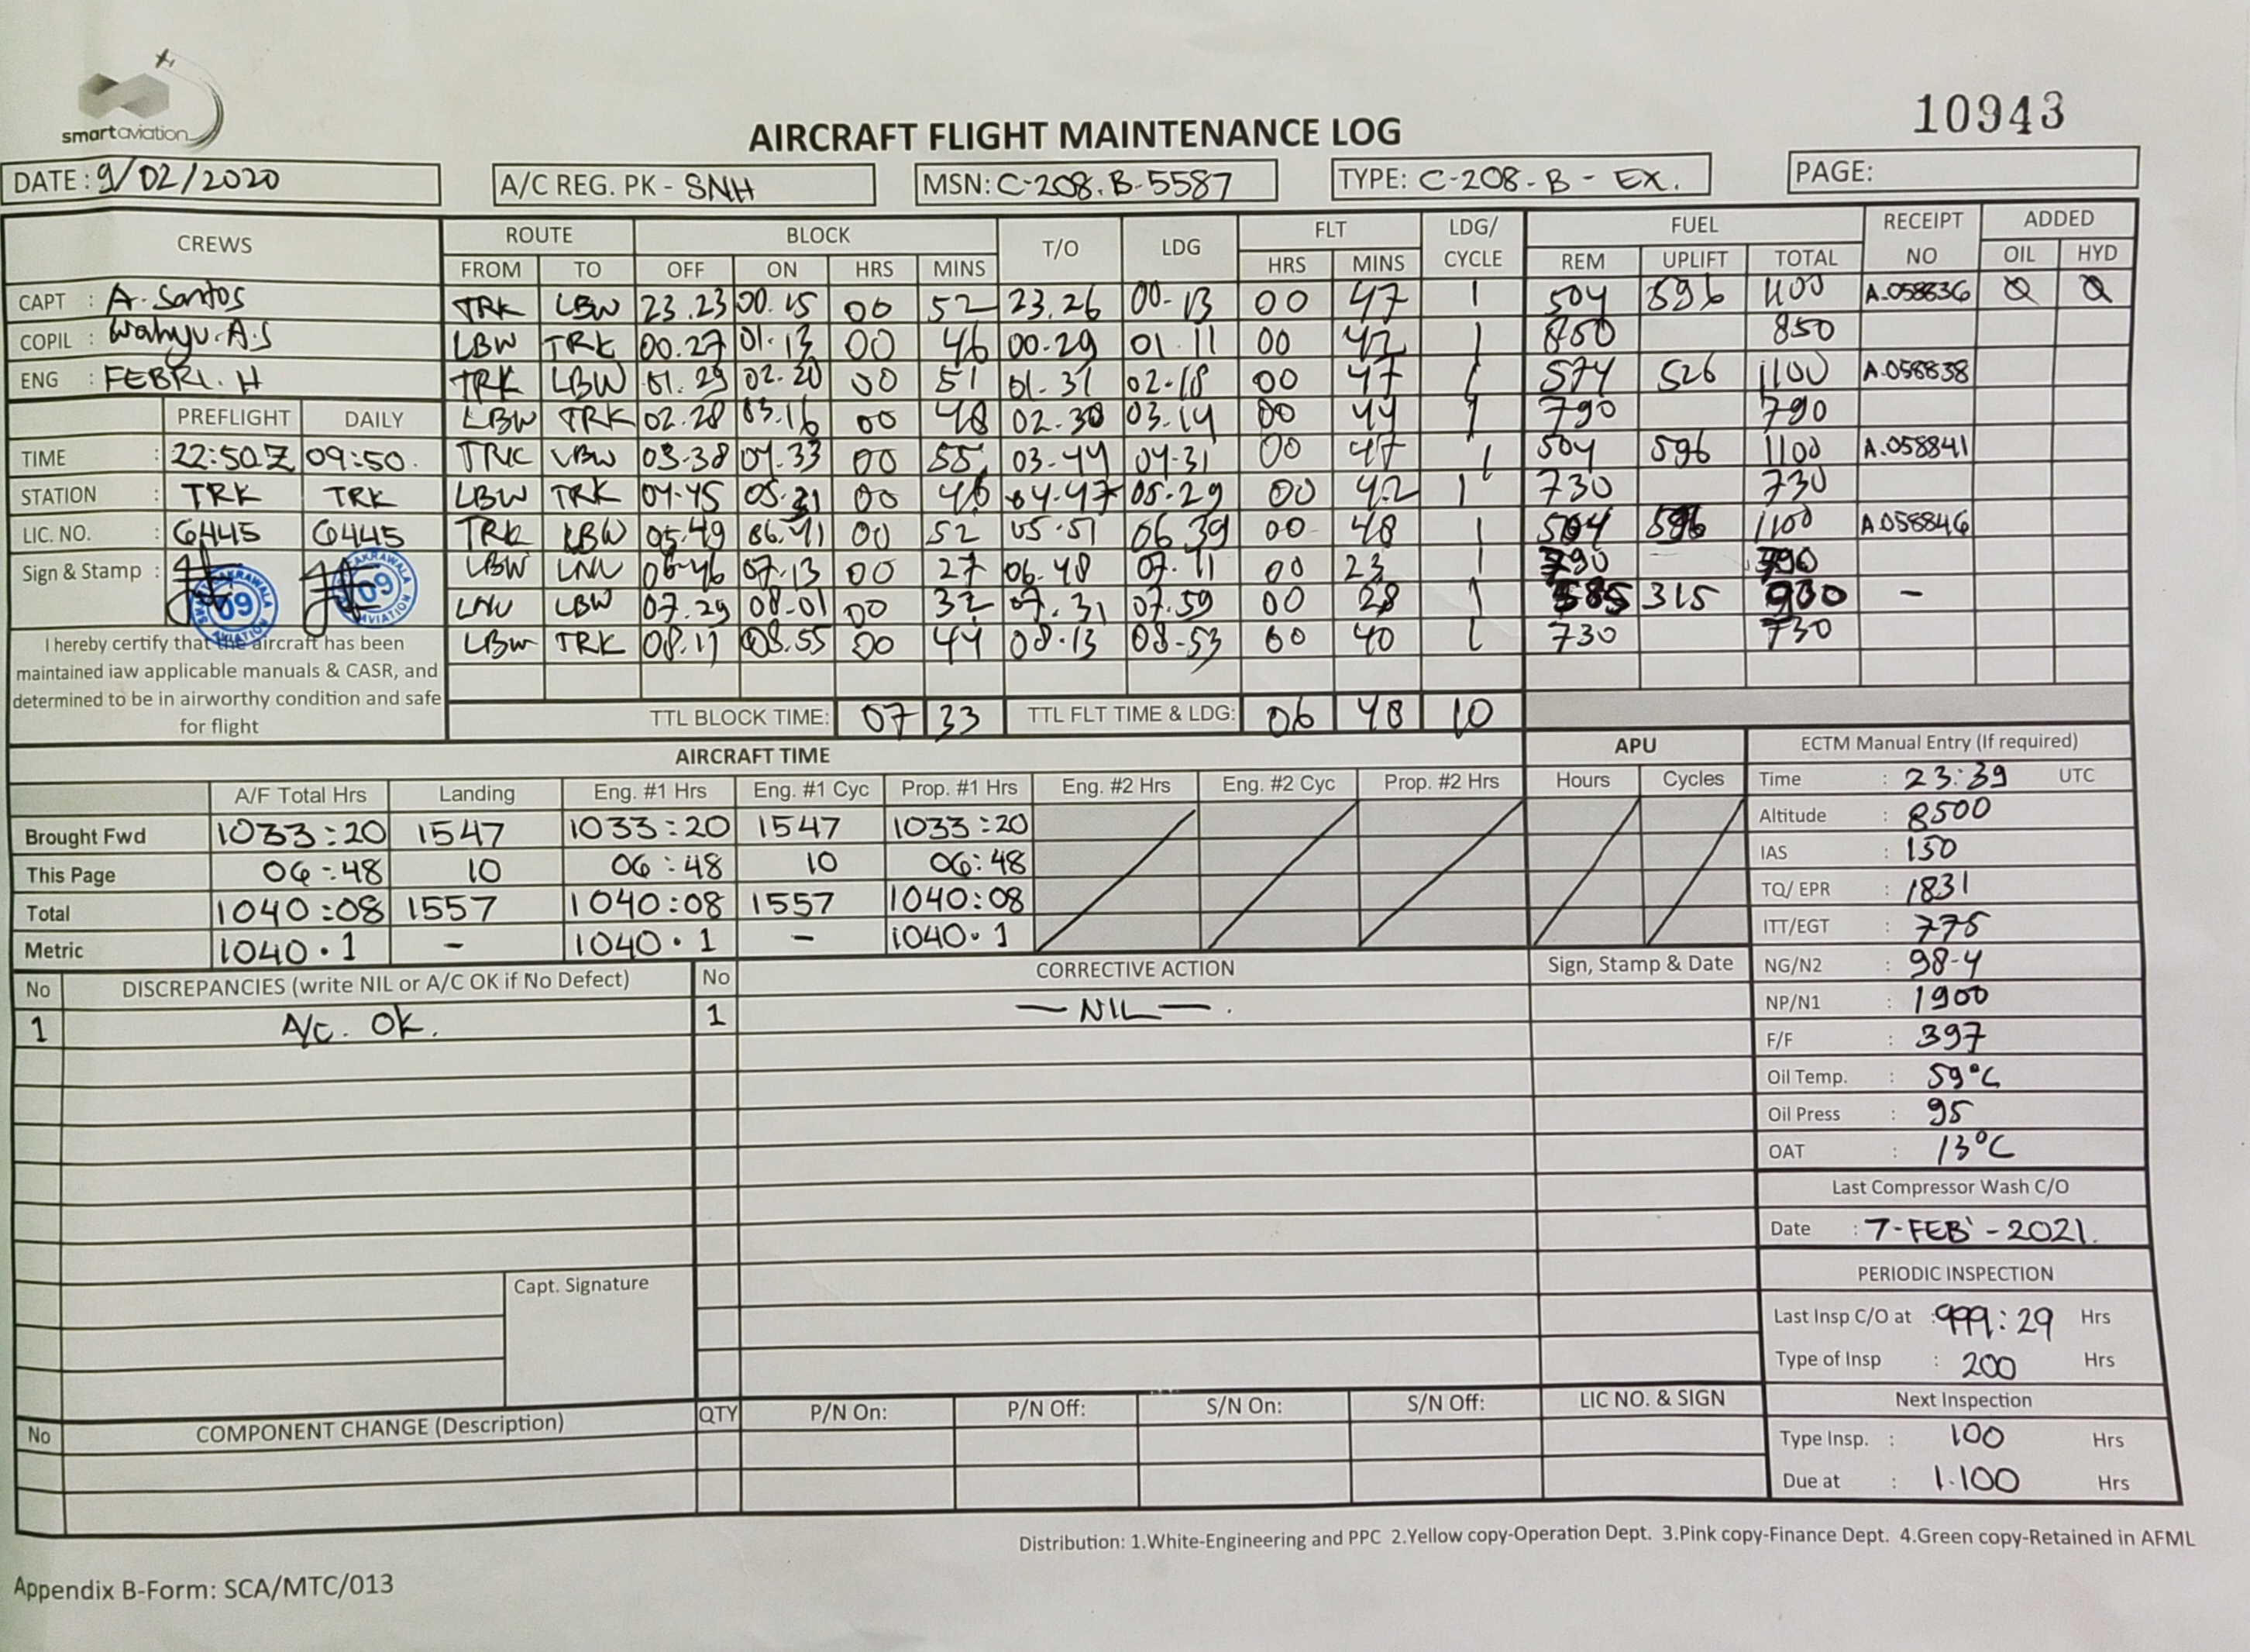 smart aviation
10943
AIRCRAFT FLIGHT MAINTENANCE LOG
DATE: 9/02/2020 A/C REG. PK - SNH MSN: C-208.B-5587 TYPE: C-208-B-EX. PAGE:
CREWS ROUTE BLOCK T/O LDG FLT LDG/ CYCLE FUEL RECEIPT NO ADDED
FROM TO OFF ON HRS MINS HRS MINS REM UPLIFT TOTAL OIL HYD
CAPT : A. Santos TRK LBW 23.23 00.15 00 52 23.26 00-13 00 47 1 504 596 1100 A.058836
COPIL : Wahyu.A.S LBW TRK 00.27 01.13 00 46 00-29 01.11 00 42 1 850 850
ENG : FEBRI. H TRK LBW 01.29 02.20 00 51 01.31 02-18 00 47 1 574 526 1100 A.058838
PREFLIGHT DAILY LBW TRK 02-28 03.16 00 48 02-30 03.14 00 44 1 790 790
TIME : 22:50Z 09:50. TRK LBW 03-38 04.33 00 55 03-44 04-31 00 47 1 504 596 1100 A.058841
STATION : TRK TRK LBW TRK 04-45 05.31 00 46 04-47 05-29 00 42 1 730 730
LIC. NO. : 6445 6445 TRK LBW 05-49 06.41 00 52 05.51 06 39 00 48 1 504 596 1100 A.058846
Sign & Stamp : LBW LNU 06-46 07-13 00 27 06.48 07.11 00 23 1 790 790
09 09 LNU LBW 07.29 08-01 00 32 07.31 07.59 00 28 1 585 315 900 -
I hereby certify that the aircraft has been LBW TRK 08.11 08.55 00 44 08-13 08-53 00 40 1 730 730
maintained iaw applicable manuals & CASR, and
determined to be in airworthy condition and safe
for flight
TTL BLOCK TIME: 07 33 TTL FLT TIME & LDG: 06 48 10
AIRCRAFT TIME APU ECTM Manual Entry (If required)
A/F Total Hrs Landing Eng. #1 Hrs Eng. #1 Cyc Prop. #1 Hrs Eng. #2 Hrs Eng. #2 Cyc Prop. #2 Hrs Hours Cycles Time : 23:39 UTC
Brought Fwd 1033:20 1547 1033:20 1547 1033:20 Altitude : 8500
This Page 06:48 10 06:48 10 06:48 IAS : 150
Total 1040:08 1557 1040:08 1557 1040:08 TQ/ EPR : 1831
Metric 1040.1 - 1040.1 - 1040.1 ITT/EGT : 775
No DISCREPANCIES (write NIL or A/C OK if No Defect) No CORRECTIVE ACTION Sign, Stamp & Date NG/N2 : 98-4
1 A/c. OK. 1 — NIL — . NP/N1 : 1900
F/F : 397
Oil Temp. : 59°C
Oil Press : 95
OAT : 13°C
Last Compressor Wash C/O
Date : 7-FEB'-2021.
PERIODIC INSPECTION
Capt. Signature
Last Insp C/O at : 999:29 Hrs
Type of Insp : 200 Hrs
No COMPONENT CHANGE (Description) QTY P/N On: P/N Off: S/N On: S/N Off: LIC NO. & SIGN Next Inspection
Type Insp. : 100 Hrs
Due at : 1.100 Hrs
Distribution: 1.White-Engineering and PPC 2.Yellow copy-Operation Dept. 3.Pink copy-Finance Dept. 4.Green copy-Retained in AFML
Appendix B-Form: SCA/MTC/013